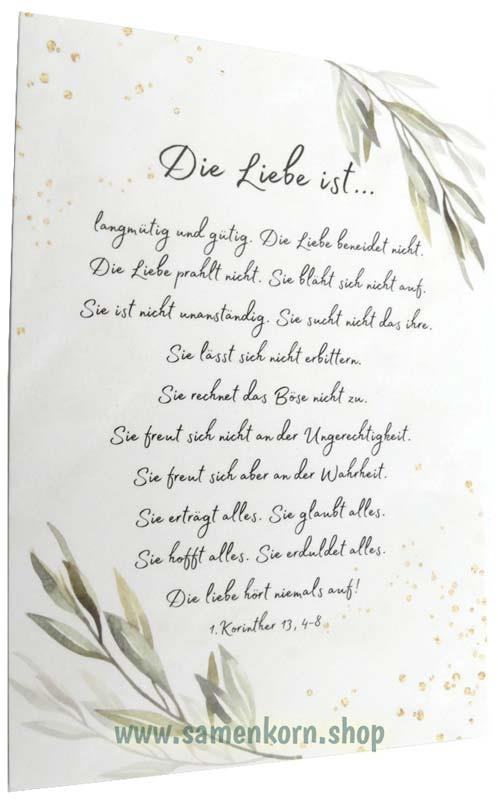 Die Liebe ist...
langmütig und gütig. Die Liebe beneidet nicht.
Die Liebe prahlt nicht. Sie bläht sich nicht auf.
Sie ist nicht unanständig. Sie sucht nicht das ihre.
Sie lässt sich nicht erbittern.
Sie rechnet das Böse nicht zu.
Sie freut sich nicht an der Ungerechtigkeit.
Sie freut sich aber an der Wahrheit.
Sie erträgt alles. Sie glaubt alles.
Sie hofft alles. Sie erduldet alles.
Die liebe hört niemals auf!
1. Korinther 13, 4-8
www.samenkorn.shop